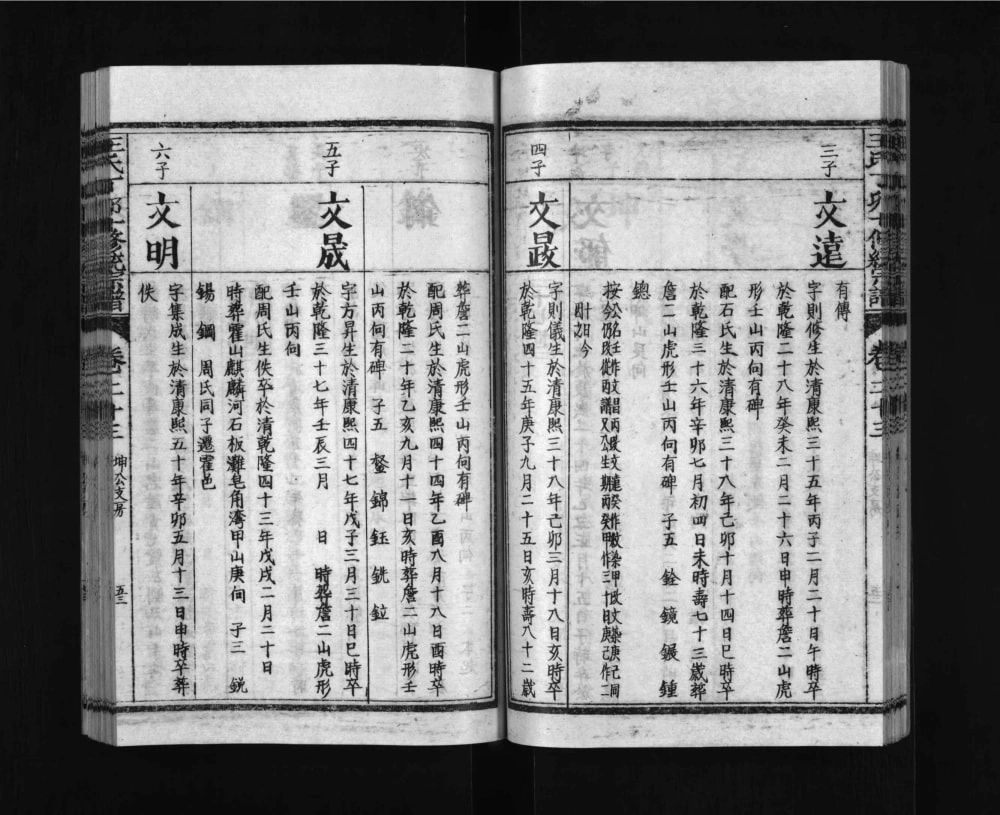 三子
文遠
有傳
字則修生於清康熙三十五年丙子二月二十日午時卒
於乾隆二十八年癸未二月二十六日申時葬詹二山虎
形壬山丙向有碑
配石氏生於清康熙三十八年己卯十月十四日巳時卒
於乾隆三十六年辛卯七月初四日未時壽七十三歲葬
詹二山虎形壬山丙向有碑 子五 銓 鏡 鎩 鍾
總
四子
文晸
字則儀生於清康熙三十八年己卯三月十八日亥時卒
於乾隆四十五年庚子九月二十五日亥時壽八十二歲
葬詹二山虎形壬山丙向有碑
配周氏生於清康熙四十四年乙酉八月十八日酉時卒
於乾隆二十年乙亥九月十一日亥時葬詹二山虎形壬
山丙向有碑 子五 鏊 錦 鈺 銑 鉝
五子
文晟
字方昇生於清康熙四十七年戊子三月三十日巳時卒
於乾隆三十七年壬辰三月 日 時葬詹二山虎形
壬山丙向
配周氏生佚卒於清乾隆四十三年戊戌二月二十日
時葬霍山麒麟河石板灘皂角灣甲山庚向 子三 銳
錫 鋼 周氏同子遷霍邑
六子
文明
字集成生於清康熙五十年辛卯五月十三日申時卒葬
佚
王氏丁卯十修統宗譜 卷二十三 坤公支房 五三